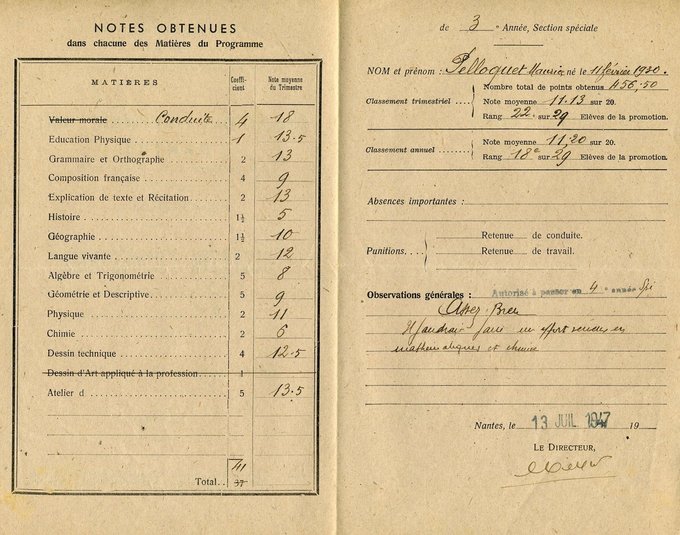 NOTES OBTENUES
dans chacune des Matières du Programme
MATIÈRES Coeffi-cient Note moyenne du Trimestre
Valeur morale Conduite 4 18
Education Physique 1 13.5
Grammaire et Orthographe 2 13
Composition française 4 9
Explication de texte et Récitation 2 13
Histoire 1½ 5
Géographie 1½ 10
Langue vivante 2 12
Algèbre et Trigonométrie 5 8
Géométrie et Descriptive 5 9
Physique 2 11
Chimie 2 6
Dessin technique 4 12.5
Dessin d'Art appliqué à la profession 1
Atelier d 5 13.5
41
Total 37
de 3 Année, Section spéciale
NOM et prénom : Pelloquet Maurice né le 11 février 1930.
Nombre total de points obtenus 456,50
Classement trimestriel Note moyenne 11.13 sur 20.
Rang 22 sur 29 Elèves de la promotion.
Classement annuel Note moyenne 11,20 sur 20.
Rang 18e sur 29 Elèves de la promotion.
Absences importantes :
Punitions. Retenue de conduite.
Retenue de travail.
Observations générales : Autorisé à passer en 4e année
Assez Bien
Il faudrait faire un effort en
mathématiques et chimie
Nantes, le 13 JUIL 1947 19
LE DIRECTEUR,